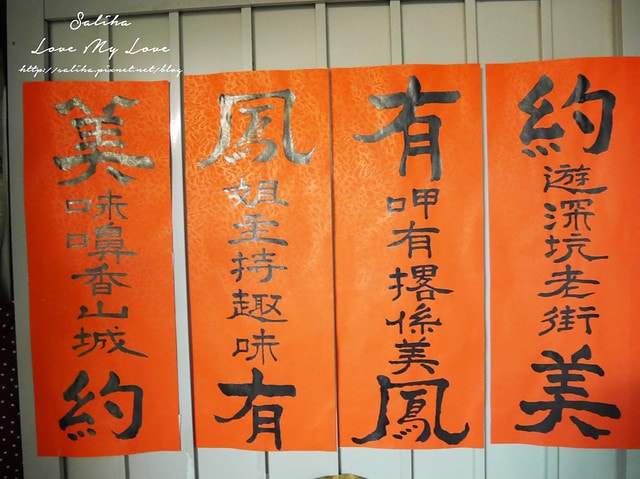 Saliha
Love My Love
http://saliha.pixnet.net/blog
約遊深坑老街美
有呷有撂係美鳳
鳳姐主持趣味有
美味嚊香山城約